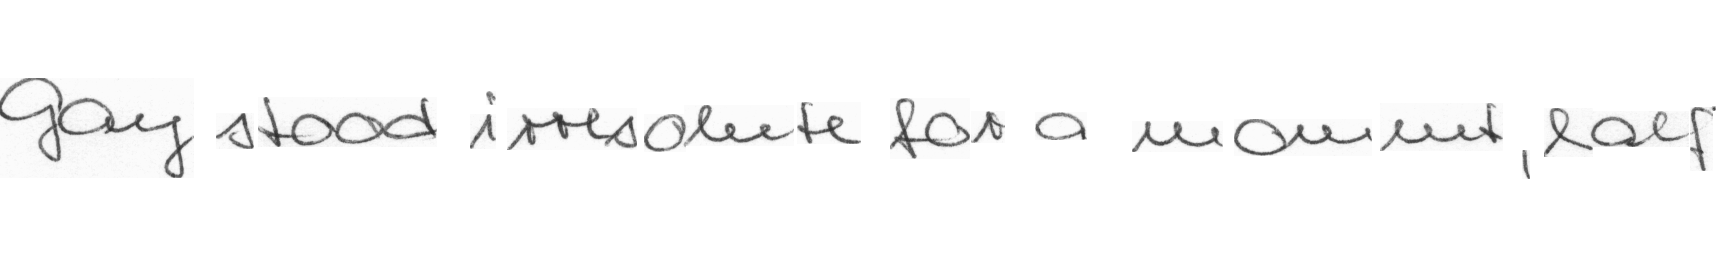 Gay stood irresolute for a moment, half